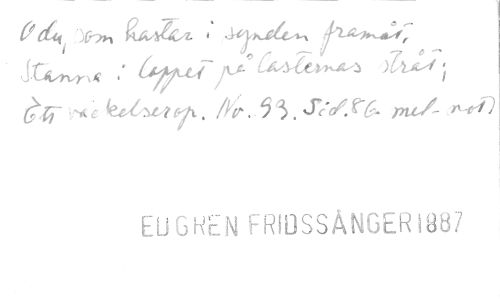 O du, som hastar i synden framåt,
Stanna i loppet på lasternas stråt;
Ett väckelserop. No. 93. Sid. 86. mel. not)
EUGREN FRIDSSÅNGER 1887